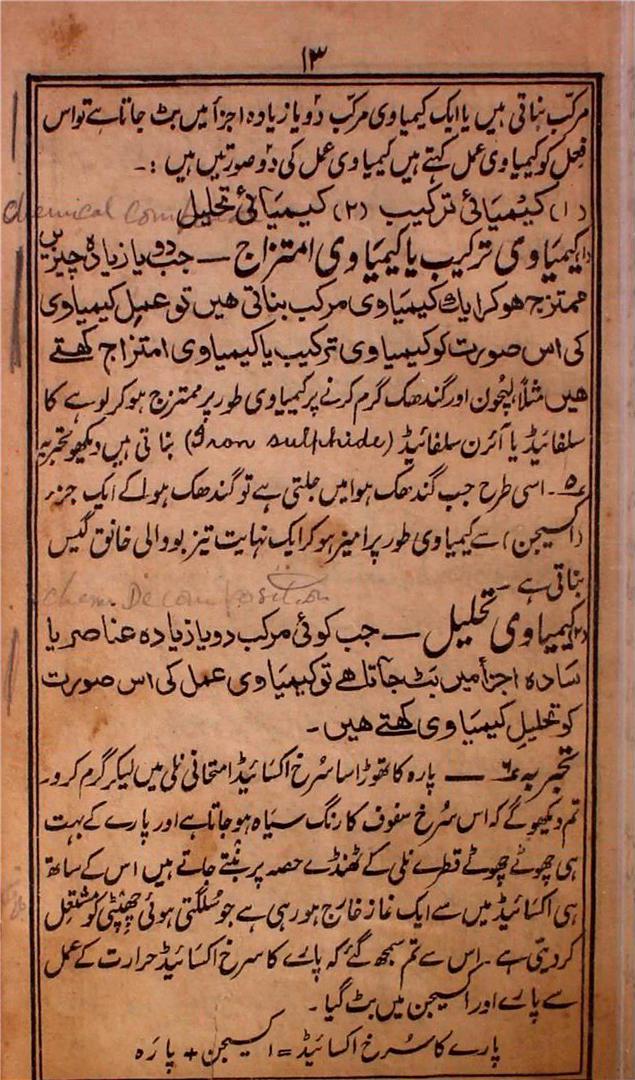 ۱۳
مرکّب بناتی ہیں یا ایک کیمیاوی مرکّب دو یا زیادہ اجزأ میں بٹ جاتا ہے تو اس
فعل کو کیمیاوی عمل کہتے ہیں کیمیاوی عمل کی دو صورتیں ہیں :۔
(۱) کیمیائی ترکیب (۲) کیمیائی تحلیل
chemical
(۱) کیمیاوی ترکیب یا کیمیاوی امتزاج — جب دو یا زیادہ چیزیں
ممتزج ہوکر ایک کیمیاوی مرکب بناتی ہیں تو عمل کیمیاوی
کی اس صورت کو کیمیاوی ترکیب یا کیمیاوی امتزاج کہتے
ہیں مثلاً لہچون اور گندھک گرم کرنے پر کیمیاوی طور پر ممتزج ہوکر لوہے کا
سلفائیڈ یا آئرن سلفائیڈ (Iron sulphide) بناتی ہیں دیکھو تجربہ
۵۔ اسی طرح جب گندھک ہوا میں جلتی ہے تو گندھک ہوا کے ایک جزو
(آکسیجن) سے کیمیاوی طور پر امیز ہوکر ایک نہایت تیز بو والی خانق گیس
بناتی ہے —
chem. Decomposition
(۲) کیمیاوی تحلیل — جب کوئی مرکب دو یا زیادہ عناصر یا
سادہ اجزأ میں بٹ جاتا ہے تو کیمیاوی عمل کی اس صورت
کو تحلیل کیمیاوی کہتے ہیں۔
تجربہ ۶ — پارہ کا تھوڑا سا سرخ اکسائیڈ امتحانی نلی میں لیکر گرم کرو۔
تم دیکھو گے کہ اس سُرخ سفوف کا رنگ سیاہ ہو جاتا ہے اور پارے کے بہت
ہی چھوٹے چھوٹے قطرے نلی کے ٹھنڈے حصہ پر بنتے جاتے ہیں اس کے ساتھ
ہی اکسائیڈ میں سے ایک غاز خارج ہو رہی ہے جو سُلگتی ہوئی چھپٹی کو مشتعل
کر دیتی ہے۔ اس سے تم سمجھ گئے کہ پارے کا سرخ اکسائیڈ حرارت کے عمل
سے پارے اور اکسیجن میں بٹ گیا۔
پارے کا سُرخ اکسائیڈ = اکسیجن + پارہ